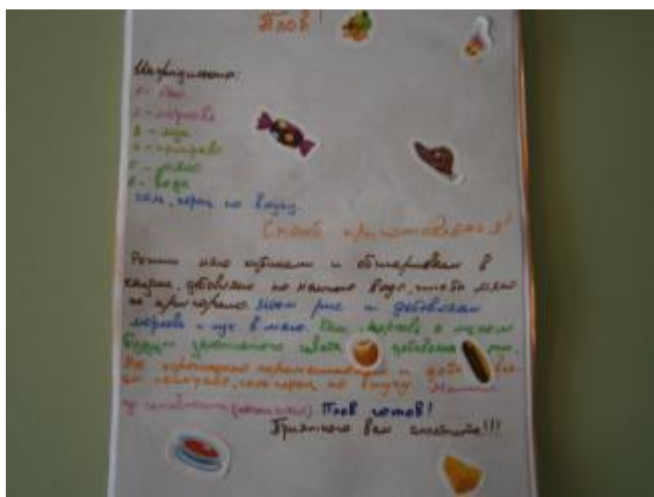 Плов
Ингредиенты:
2 - морковь
3 - лук
5 - мясо
6 - вода
соль, перец по вкусу.
Способ приготовления!
Режим мясо кубиками и обжариваем в
казане, добавляем по немного воды, чтобы мясо
не пригорело. Моем рис и добавляем
морковь и лук в мясо. Как морковь с луком
будут золотистого цвета добавляем рис.
Все хорошенько перемешиваем и
соль перец по вкусу.
Плов готов!
Приятного вам аппетита!!!